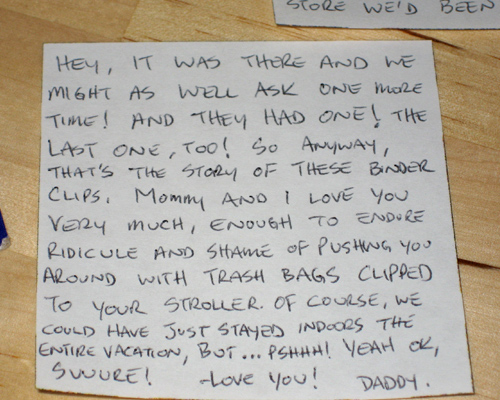 STORE WE'D BEEN
HEY, IT WAS THERE AND WE
MIGHT AS WELL ASK ONE MORE
TIME! AND THEY HAD ONE! THE
LAST ONE, TOO! SO ANYWAY,
THAT'S THE STORY OF THESE BINDER
CLIPS. MOMMY AND I LOVE YOU
VERY MUCH, ENOUGH TO ENDURE
RIDICULE AND SHAME OF PUSHNG YOU
AROUND WITH TRASH BAGS CLIPPED
TO YOUR STROLLER. OF COURSE, WE
COULD HAVE JUST STAYED INDOORS THE
ENTIRE VACATION, BUT... PSHHH! YEAH OK,
SUUURE! -LOVE YOU! DADDY.